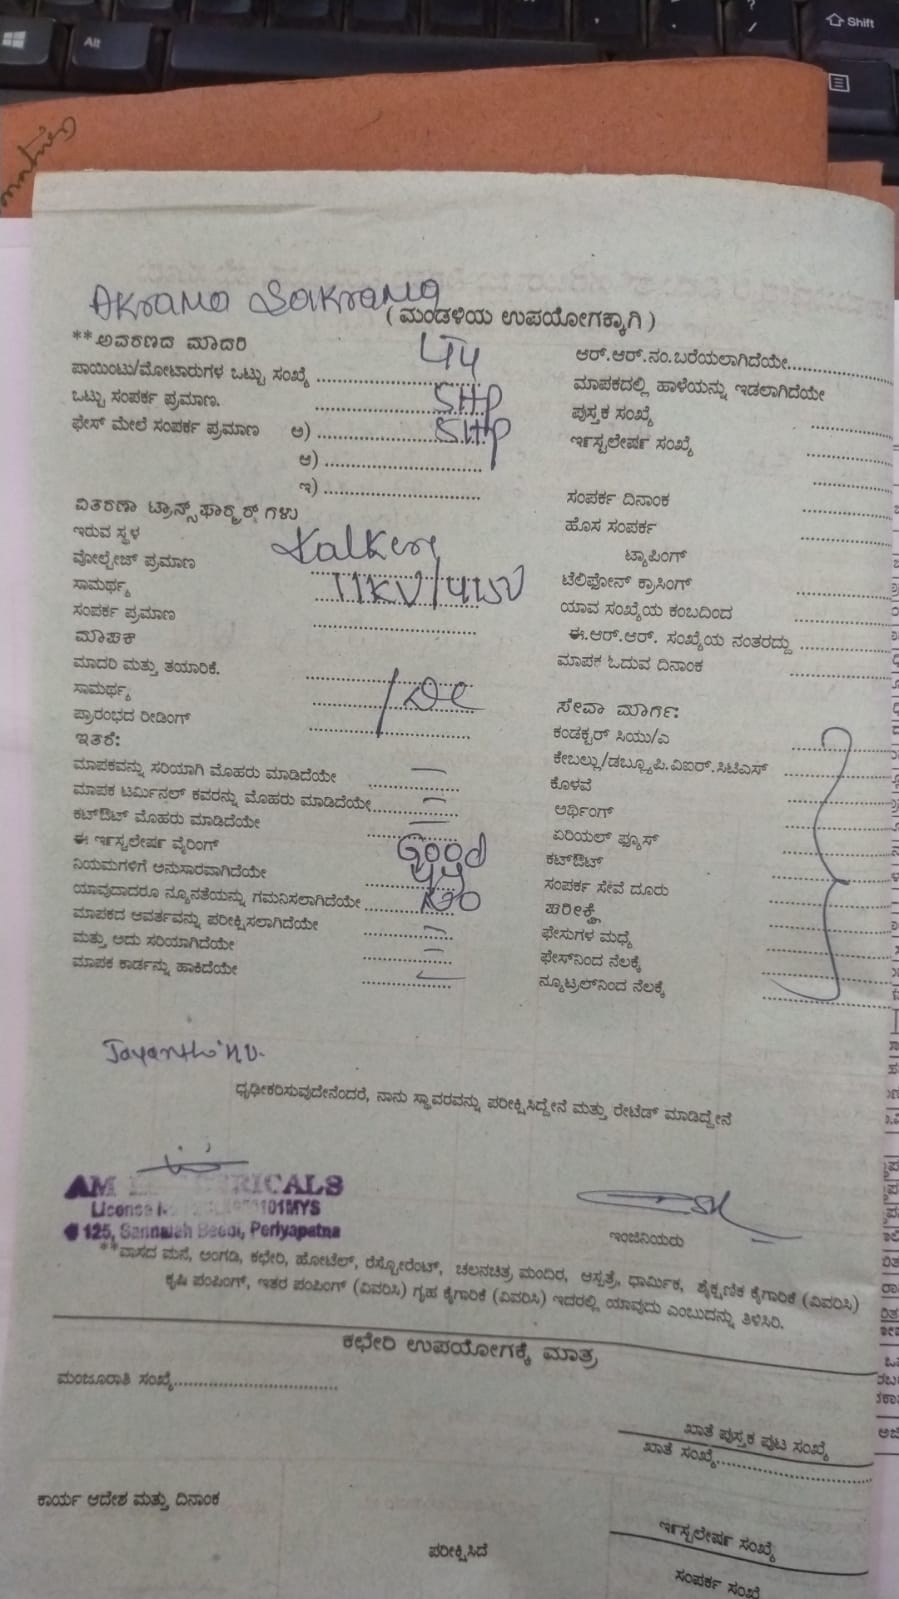 Alt
Shift
AKRAMA SAKRAMA
( ಮಂಡಳಿಯ ಉಪಯೋಗಕ್ಕಾಗಿ )
**ಆವರಣದ ಮಾದರಿ
ಪಾಯಿಂಟು/ಮೋಟಾರುಗಳ ಒಟ್ಟು ಸಂಖ್ಯೆ
ಒಟ್ಟು ಸಂಪರ್ಕ ಪ್ರಮಾಣ. 5HP
ಫೇಸ್ ಮೇಲೆ ಸಂಪರ್ಕ ಪ್ರಮಾಣ ಅ) 5HP
ಆ)
ಇ)
ವಿತರಣಾ ಟ್ರಾನ್ಸ್‌ಫಾರ್ಮರ್‌ಗಳು
ಇರುವ ಸ್ಥಳ Kalkere
ವೋಲ್ಟೇಜ್ ಪ್ರಮಾಣ 11KV/415V
ಸಾಮರ್ಥ್ಯ
ಸಂಪರ್ಕ ಪ್ರಮಾಣ
ಮಾಪಕ
ಮಾದರಿ ಮತ್ತು ತಯಾರಿಕೆ.
ಸಾಮರ್ಥ್ಯ
ಪ್ರಾರಂಭದ ರೀಡಿಂಗ್
ಇತರೆ:
ಮಾಪಕವನ್ನು ಸರಿಯಾಗಿ ಮೊಹರು ಮಾಡಿದೆಯೇ
ಮಾಪಕ ಟರ್ಮಿನಲ್ ಕವರನ್ನು ಮೊಹರು ಮಾಡಿದೆಯೇ
ಕಟ್‌ಔಟ್ ಮೊಹರು ಮಾಡಿದೆಯೇ
ಈ ಇನ್ಸ್ಟಲೇಷನ್ ವೈರಿಂಗ್ Good
ನಿಯಮಗಳಿಗೆ ಅನುಸಾರವಾಗಿದೆಯೇ
ಯಾವುದಾದರೂ ನ್ಯೂನತೆಯನ್ನು ಗಮನಿಸಲಾಗಿದೆಯೇ NO
ಮಾಪಕದ ಆವರ್ತವನ್ನು ಪರೀಕ್ಷಿಸಲಾಗಿದೆಯೇ
ಮತ್ತು ಅದು ಸರಿಯಾಗಿದೆಯೇ
ಮಾಪಕ ಕಾರ್ಡನ್ನು ಹಾಕಿದೆಯೇ
ಆರ್.ಆರ್.ನಂ.ಬರೆಯಲಾಗಿದೆಯೇ
ಮಾಪಕದಲ್ಲಿ ಹಾಳೆಯನ್ನು ಇಡಲಾಗಿದೆಯೇ
ಪುಸ್ತಕ ಸಂಖ್ಯೆ
ಇನ್ಸ್ಟಲೇಷನ್ ಸಂಖ್ಯೆ
ಸಂಪರ್ಕ ದಿನಾಂಕ
ಹೊಸ ಸಂಪರ್ಕ
ಟ್ಯಾಪಿಂಗ್
ಟೆಲಿಫೋನ್ ಕ್ರಾಸಿಂಗ್
ಯಾವ ಸಂಖ್ಯೆಯ ಕಂಬದಿಂದ
ಈ.ಆರ್.ಆರ್. ಸಂಖ್ಯೆಯ ನಂತರದ್ದು
ಮಾಪಕ ಓದುವ ದಿನಾಂಕ
ಸೇವಾ ಮಾರ್ಗ:
ಕಂಡಕ್ಟರ್ ಸಿಯು/ಎ
ಕೇಬಲ್ಲು/ಡಬ್ಲ್ಯೂಪಿ.ವಿಐಆರ್.ಸಿಟಿಎಸ್
ಕೊಳವೆ
ಅರ್ಥಿಂಗ್
ಏರಿಯಲ್ ಫ್ಯೂಸ್
ಕಟ್‌ಔಟ್
ಸಂಪರ್ಕ ಸೇವೆ ದೂರು
ಪರೀಕ್ಷೆ
ಫೇಸುಗಳ ಮಧ್ಯೆ
ಫೇಸ್‌ನಿಂದ ನೆಲಕ್ಕೆ
ನ್ಯೂಟ್ರಲ್‌ನಿಂದ ನೆಲಕ್ಕೆ
ದೃಢೀಕರಿಸುವುದೇನೆಂದರೆ, ನಾನು ಸ್ಥಾವರವನ್ನು ಪರೀಕ್ಷಿಸಿದ್ದೇನೆ ಮತ್ತು ರೇಟೆಡ್ ಮಾಡಿದ್ದೇನೆ
License
125, Sannaiah Beedi, Periyapatna
ಇಂಜಿನಿಯರು
**ವಾಸದ ಮನೆ, ಅಂಗಡಿ, ಕಛೇರಿ, ಹೋಟೆಲ್, ರೆಸ್ಟೋರೆಂಟ್, ಚಲನಚಿತ್ರ ಮಂದಿರ, ಆಸ್ಪತ್ರೆ, ಧಾರ್ಮಿಕ, ಶೈಕ್ಷಣಿಕ ಕೈಗಾರಿಕೆ (ವಿವರಿಸಿ)
ಕೃಷಿ ಪಂಪಿಂಗ್, ಇತರ ಪಂಪಿಂಗ್ (ವಿವರಿಸಿ) ಗೃಹ ಕೈಗಾರಿಕೆ (ವಿವರಿಸಿ) ಇದರಲ್ಲಿ ಯಾವುದು ಎಂಬುದನ್ನು ತಿಳಿಸಿರಿ.
ಕಛೇರಿ ಉಪಯೋಗಕ್ಕೆ ಮಾತ್ರ
ಮಂಜೂರಾತಿ ಸಂಖ್ಯೆ
ಖಾತೆ ಪುಸ್ತಕ ಪುಟ ಸಂಖ್ಯೆ
ಖಾತೆ ಸಂಖ್ಯೆ
ಕಾರ್ಯ ಆದೇಶ ಮತ್ತು ದಿನಾಂಕ
ಇನ್ಸ್ಟಲೇಷನ್ ಸಂಖ್ಯೆ
ಪರೀಕ್ಷಿಸಿದೆ
ಸಂಪರ್ಕ ಸಂಖ್ಯೆ